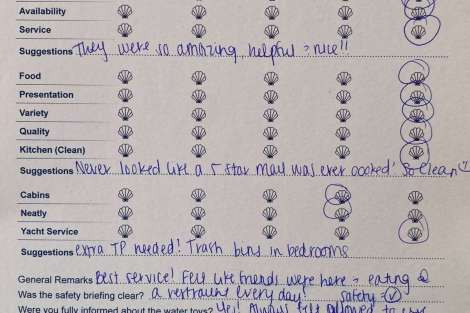 Availability
Service
Suggestions They were so amazing helpful + nice!!
Food
Presentation
Variety
Quality
Kitchen (Clean)
Suggestions Never looked like a 5 star was ever cooked! So clean
Cabins
Neatly
Yacht Service
Suggestions extra TP needed! Trash bins in bedrooms
General Remarks Best service! Felt like friends were here + eating @
Was the safety briefing clear? a every day safety
Were you fully informed about the water toys? Yes! Always felt allowed to